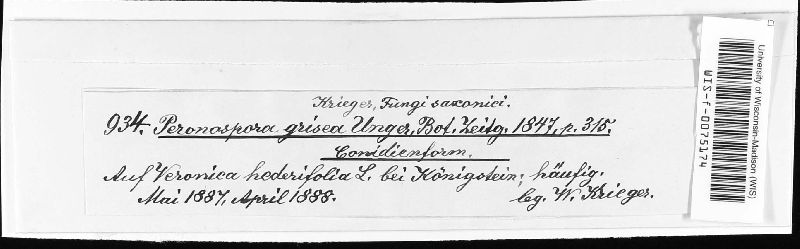 Krieger, Fungi saxonici.
934. Peronospora grisea Unger, Bot. Zeitg. 1847, p. 315.
Conidienform.
Auf Veronica hederifolia L. bei Königstein; häufig.
Mai 1887, April 1888.
leg. W. Krieger.
University of Wisconsin-Madison (WIS)
WIS-f-0075174